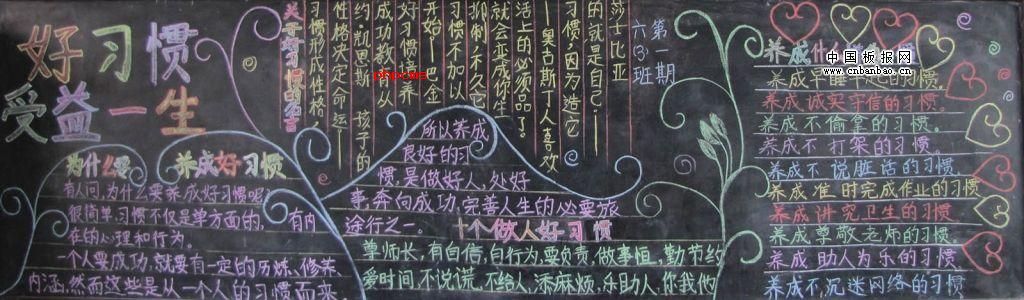 好习惯
受益一生
为什么要 养成好习惯
有人问,为什么要养成好习惯呢?
很简单,习惯不仅是单方面的,有内
在的心理和行为。
一个人要成功,就要有一定的历炼、修养
内涵,然而这些是从一个人的习惯而来
关于好习惯的名言
习惯形成性格
性格决定命运
约·凯恩斯
成功教育从
好习惯培养
开始——巴金
习惯不加以
抑制,不久它
就会变成你生
活上的必须品了。
——奥古斯丁人喜欢
习惯,因为造它
的就是自己。
莎士比亚
第一期
六(3)班
所以养成
良好的习
惯,是做好人,处好
事,奔向成功,完善人生的必要旅
途行之一。
十个做人好习惯
尊师长,有自信,自行为,要负责,做事恒,勤节约
爱时间,不说谎,不给人,添麻烦,乐助人,你我他
中国板报网
www.cnbanbao.cn
phpcms
养成诚实守信的习惯。
养成不偷拿的习惯。
养成不打架的习惯。
养成不说脏话的习惯。
养成准时完成作业的习惯
养成讲究卫生的习惯
养成尊敬老师的习惯。
养成助人为乐的习惯
养成不沉迷网络的习惯